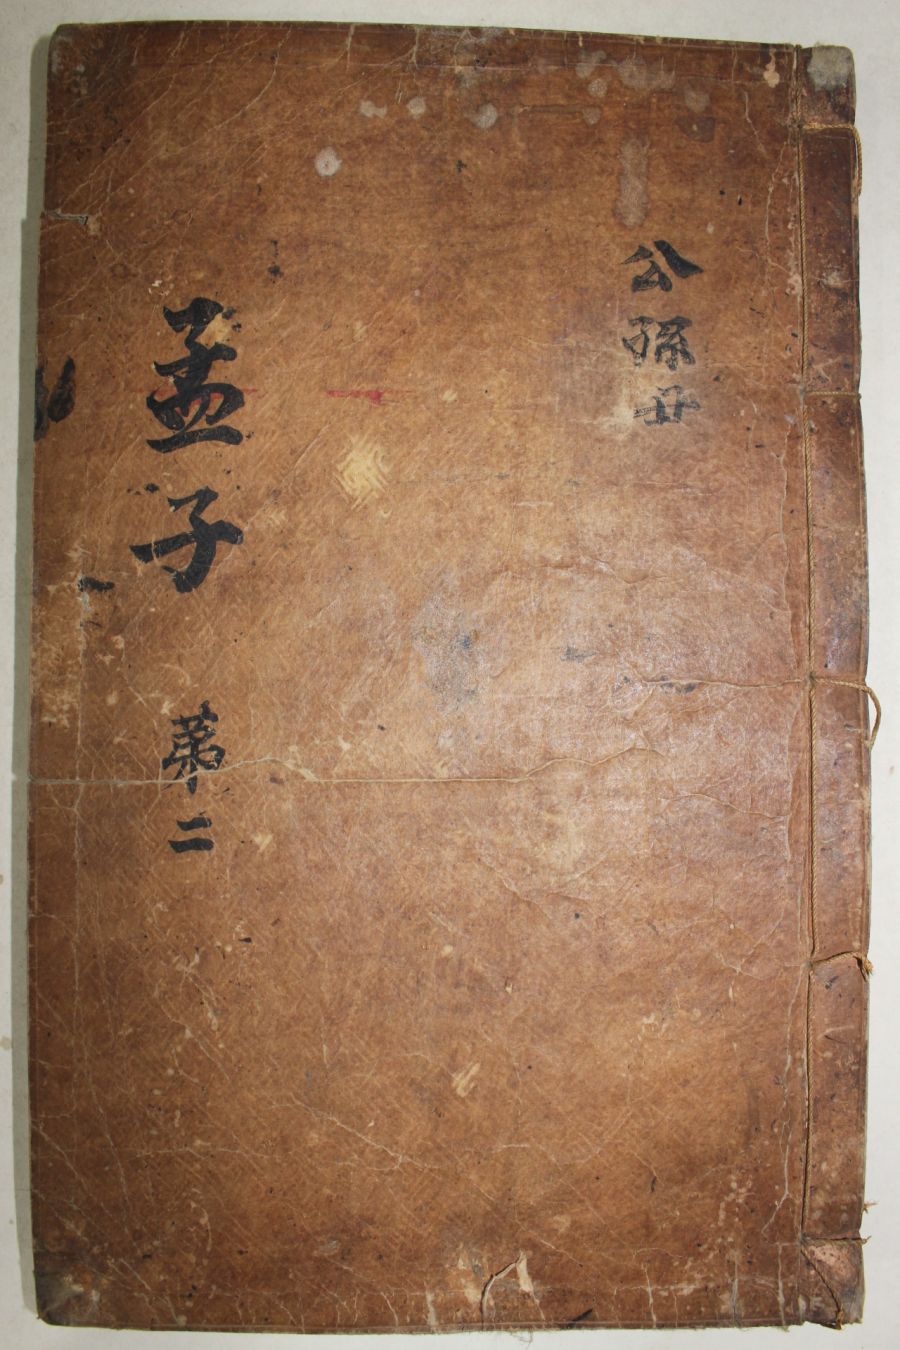 公孫丑
孟子 第二